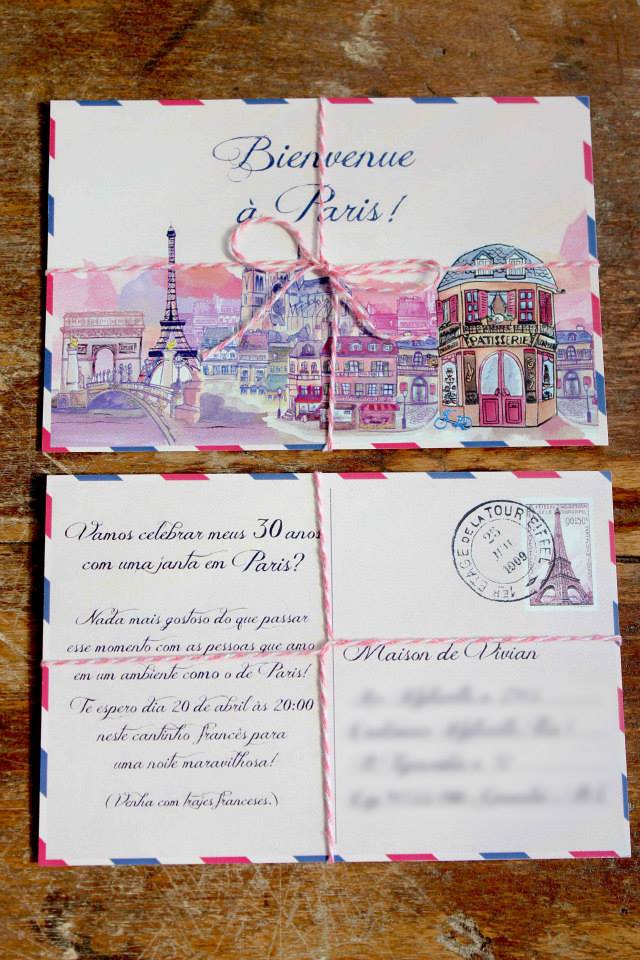 Bienvenue
à Paris!
PATISSERIE
Vamos celebrar meus 30 anos
com uma janta em Paris?
Nada mais gostoso do que passar
esse momento com as pessoas que amo
em um ambiente como o de Paris!
Te espero dia 20 de abril às 20:00
neste cantinho francês para
uma noite maravilhosa!
(Venha com trajes franceses.)
1ER ETAGE DE LA TOUR EIFFEL
25
1909
00150
Maison de Vivian